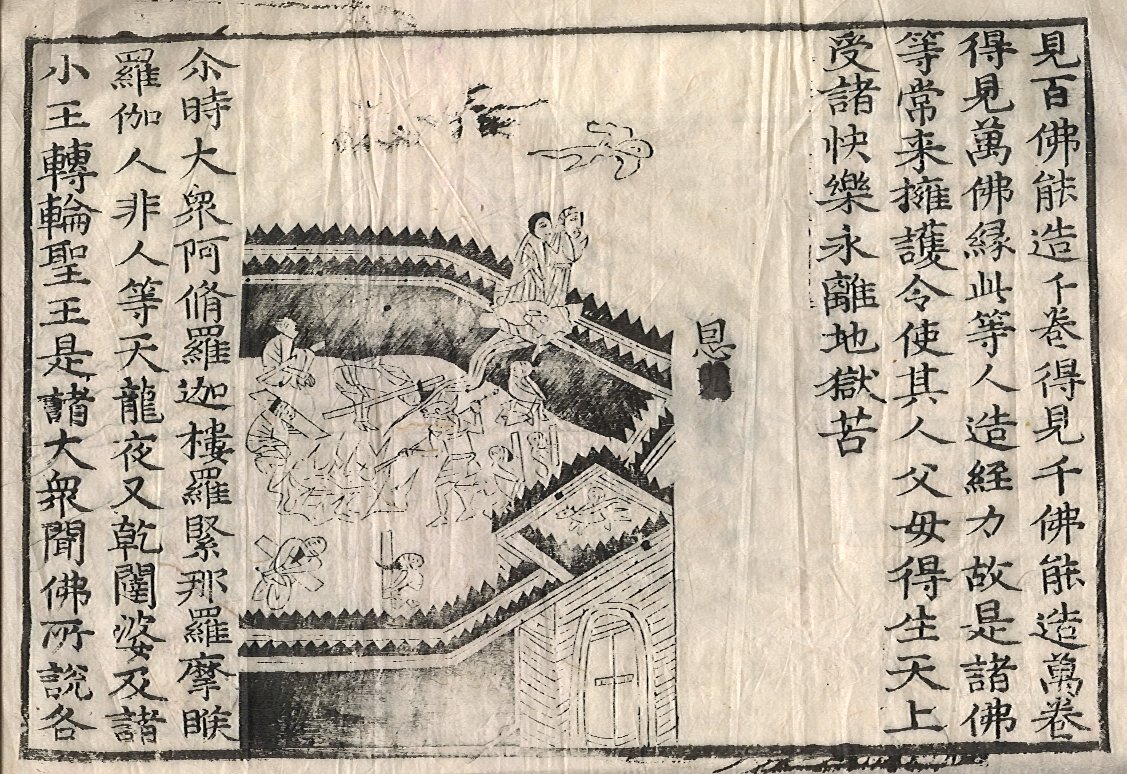 見百佛能造千卷得見千佛能造萬卷
得見萬佛縁此等人造経力故是諸佛
等常来擁護令使其人父母得生天上
受諸快樂永離地獄苦
恩
尒時大衆阿脩羅迦樓羅緊那羅摩睺
羅伽人非人等天龍夜叉乾闥婆及諸
小王轉輪聖王是諸大衆聞佛所説各